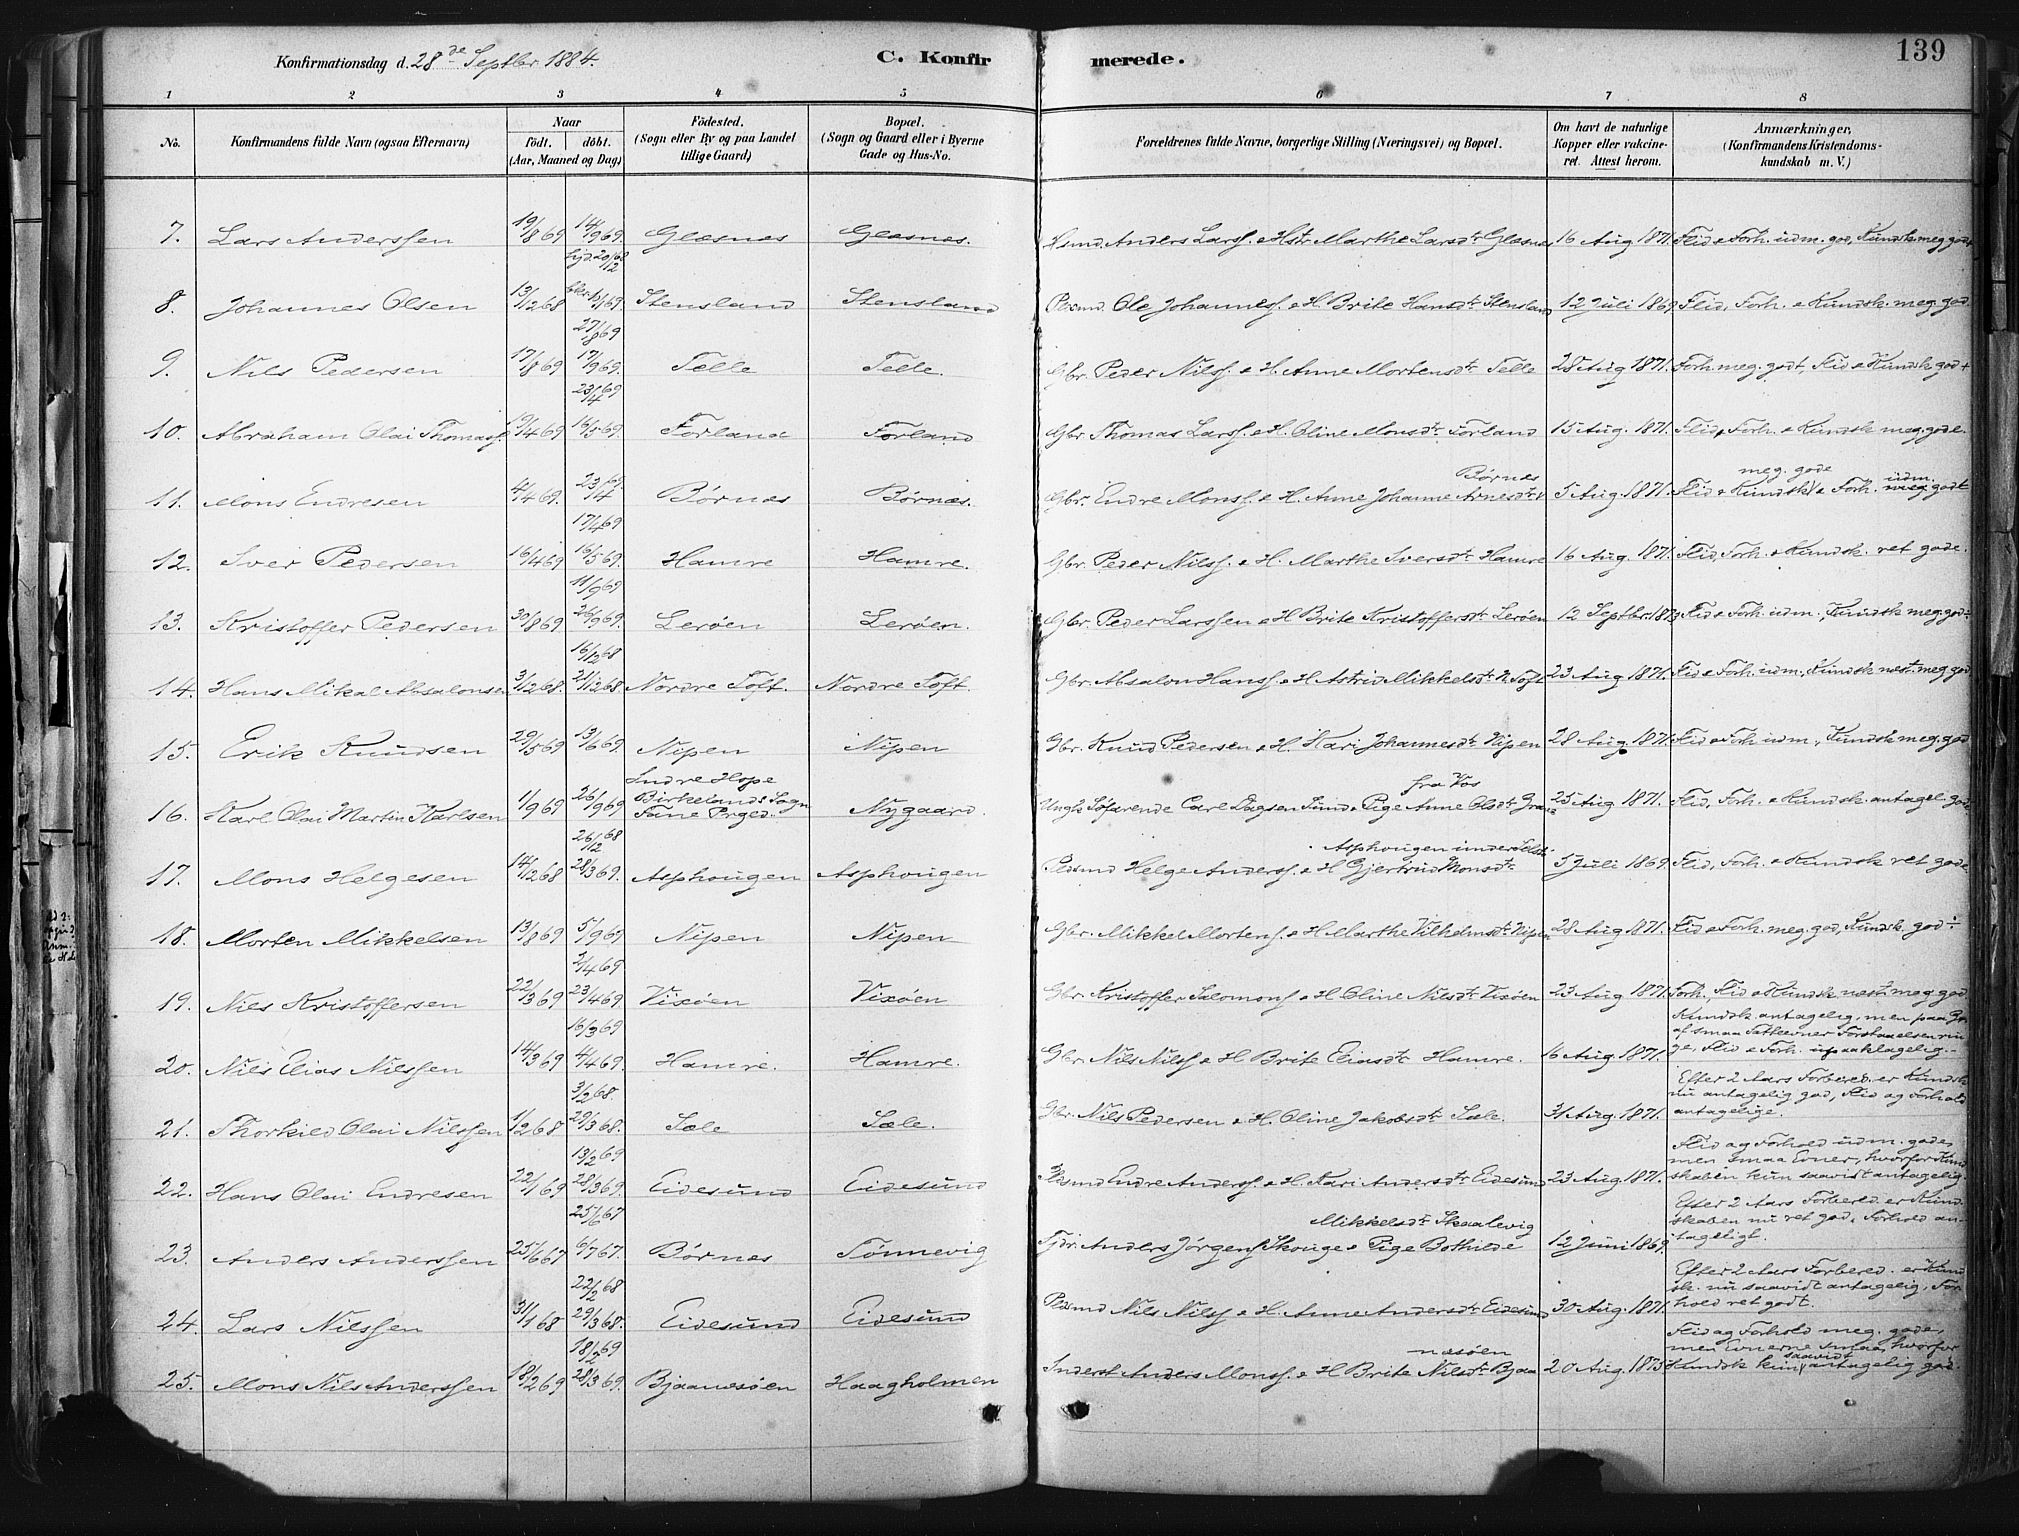 Konfirmationsdag d. 28de Septbr 1884.
C. Konfirmerede.
139
1 2 3 4 5 6 7 8
No.
Konfirmandens fulde Navn (ogsaa Efternavn)
Naar
födt. döbt.
(Aar, Maaned og Dag)
Födested.
(Sogn eller By og paa Landet
tillige Gaard)
Bopæl.
(Sogn og Gaard eller i Byerne
Gade og Hus-No.
Forældrenes fulde Navne, borgerlige Stilling (Næringsvei) og Bopæl.
Om havt de naturlige
Kopper eller vakcine-
ret. Attest herom.
Anmærkninger.
(Konfirmandens Kristendoms-
kundskab m. V.)
7. Lars Anderssen 19/8 69 14/9 69. Glæsnes Glæsnes. Hsmd. Anders Larss. & Hstr Marthe Larsdtr Glæsnes 16 Aug 1871. Flid & Forh. udm. god, Kundsk meg god
8. Johannes Olsen 13/12 68 Stensland Stensland Plsmd. Ole Johanness. & H. Brite Hansdtr Stensland 12 Juli 1869 Flid, Forh. & Kundsk. meg. god.
27/8 69
9. Nils Pedersen 17/8 69 17/9 69. Telle Telle. Gbr. Peder Nilss. & H. Anne Mortensdtr Telle 28 Aug 1871. Forh. meg. godt, Flid & Kundsk god+
23/4 69
10. Abraham Olai Thomass. 19/4 69 16/5 69. Forland Forland Gbr. Thomas Larss. & H. Oline Monsdtr. Forland 15 Aug. 1871. Flid, Forh. & Kundsk meg. gode.
Børnes
meg. gode
udm.
11. Mons Endresen 4/4 69. 23/4 69. Børnes Børnæs. Gbr. Endre Monss. & H. Anne Johanne Arnesdtr 5 Aug. 1871. Flid & Kundsk & Forh. meg. godt
17/4 69
12. Iver Pedersen 16/4 69 16/5 69. Hamre Hamre. Gbr. Peder Nilss. & H. Marthe Iversdtr Hamre 16 Aug. 1871. Flid, Forh. & Kundsk. ret gode.
11/9 69
13. Kristoffer Pedersen 30/8 69 26/9 69. Lerøen Lerøen. Gbr. Peder Larssen & H Brite Kristoffersdtr Lerøen 12 Septbr. 1873 Flid & Forh. udm., Kundsk meg. god÷
16/12 68
14. Hans Mikal Absalonsen 3/12 68. 21/12 68. Nordre Toft. Nordre Toft. Gbr. Absalon Hanss. & H. Astrid Mikkelsdtr N. Toft 23 Aug 1871. Flid & Forh. udm., Kundsk næst meg. god
15. Erik Knudsen 29/5 69 13/6 69. Nipen Nipen Gbr. Knud Pedersen & H. Kari Johannesdtr Nipen 28 Aug. 1871. Flid & Forh udm., Kundsk meg. god
Indre Hope
Birkelands Sogn
fra Vos
16. Karl Olai Martin Karlsen 1/9 69 26/9 69 Fane Prgd. Nygaard. Ungk. Søfarende Carl Dagsen Sund & Pige Anne Olsdtr 25 Aug 1871. Flid, Forh. & Kundsk. antagel. gode
26/12 68
Asphougen under
17. Mons Helgesen 14/12 68 28/3 69. Asphougen Asphougen Plsmd Helge Anderss. & H Gjertrud Monsdtr 5 Juli 1869. Flid, Forh. & Kundsk ret gode
18. Morten Mikkelsen 13/8 69 5/9 69 Nipen Nipen Gbr. Mikkel Mortens. & H Marthe Vilhelmsdtr. Nipen 28 Aug 1871. Flid & Forh. meg. god, Kundsk. god÷
2/4 69
19. Nils Kristoffersen 22/3 69 23/4 69. Vixøen Vixøen Gbr. Kristoffer Salomons. & H Oline Nilsdtr Vixøen 23 Aug 1871. Forh., Flid & Kundsk næst meg. god
16/3 69
20. Nils Elias Nilssen 14/3 69 4/4 69. Hamre. Hamre. Gbr. Nils Nilss. & H Brite Eliasdtr Hamre. 16 Aug 1871. Kundsk. antagelig, men paa Gr.
af smaa Sætteevner Forstaaelsen rin
ge, Flid & Forh. upaaklagelig.
3/2 68.
21. Thorkild Olai Nilssen 1/2 68 29/3 68. Sæle Sæle. Gbr. Nils Pedersen & H. Oline Jakobsdtr Sæle. 31 Aug. 1871. Efter 2 Aars Forbered. er Kundsk
nu antagelig god, Flid og Forhold
antagelige.
13/2 69
22. Hans Olai Endresen 22/1 69 28/3 69. Eidesund Eidesund Plsmd Endre Anderss. & H. Kari Andersdtr Eidesund 23 Aug 1871. Flid og Forhold udm. gode,
men smaa Evner, hvorfor Kund
skaben kun saavidt antagelig.
25/6 67
Mikkelsdtr Skaalevig
23. Anders Anderssen 25/6 67 6/7 67. Børnes Tønnevig Tjdr. Anders Jørgens. Skouge & Pige Bothilde 12 Juni 1869. Efter 2 Aars Forbered. er Kund
skaben nu ret god, Forhold an-
tageligt.
22/2 68
24. Lars Nilssen 31/1 68 29/3 68. Eidesund Eidesund Plsmd Nils Nilss. & H. Anne Andersdtr Eidesund 30 Aug. 1871. Efter 2 Aars Forbered. er Kund
sk. nu saavidt antagelig, For
hold ret godt.
18/2 69
næsøen
25. Mons Nils Anderssen 18/2 69 28/3 69. Bjaanesøen Haagholmen Inderst Anders Monss. & H Brite Nilsdtr Bjaa 20 Aug. 1875 Flid og Forhold meg. gode,
men Evnerne smaa, hvorfor
Kundsk kun saavidt antagelig god